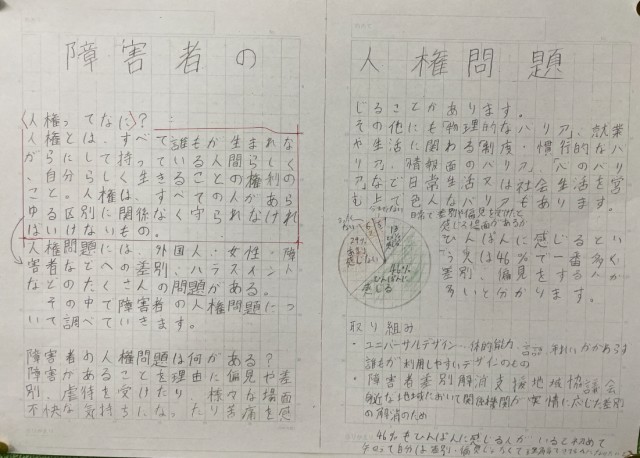 障害者の人権問題
〈人権ってなに〉?
人権とは、すべて誰もが生まれな
がらにして持っている人間らしく
、自分らしく生きることの権利の
こと。人権は、すべての人があら
ゆる区別に関係なく守られなけれ
ばいけないもの。
人権問題には、外国人・女性・障
害者などへの差別、ハラスメント
などのたくさんの問題がある。
その中で障害者の人権問題につ
いて調べていきます。
障害者の人権問題は何がある?
障害があることを理由に偏見や差
別、虐待を受けたり、様々な場面
不快な気持ちになったり苦痛を感
じることがあります。
その他にも「物理的なバリア」、就業
や生活に関わる「制度・慣行的なバ
リア」、「情報面のバリア」、「心のバリ
ア」など日常生活又は社会生活を営
む上で色んなバリアもあります。
差別や偏見を
感じる場面があるか
46%
ひんぱんに
感じる
ひんぱんに感じるとい
う人は46%で一番多く
差別、偏見をする人が
多いと分かります。
取り組み
・ユニバーサルデザイン…体的能力、言語
誰もが利用しやすいデザインのもの
・障害者差別解消支援地域協議会
身近な地域において関係機関が実情に応じた差別
の解消のため
46%もひんぱんに感じる人がいると
自分は差別・偏見